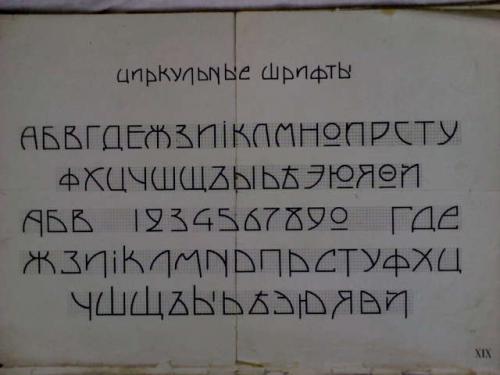 циркульные шрифты
АБВГДЕЖЗИІКЛМНОПРСТУ
ФХЦЧШЩЪЫЬѢЭЮЯѲЙ
АБВ 1234567890 ГДЕ
ЖЗИІКЛМNОПРСТУФХЦ
ЧШЩЪЫЬѢЭЮЯѲЙ
XIX